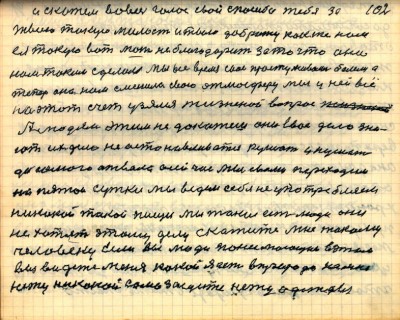 и скажем во весь голос свой спасибо тебя за 102
твою такую милость и твою доброту как же нам
ея такую вот не благодарить за то что она
нам такие сделала мы все время свое простуживали болели а
теперь она нам сменила свою атмосферу мы у ней всё
на этот счет узяли жизненой вопрос
А людям этим не докажешь они свое дело зна-
ют их дело не останавливатся кушать и кушать
до самого отвала а сейчас мы своим переходим
на пятое сутки мы ведем себя не употребляем
никакой такой пищи мы такие есть люди они
не хотят этому делу скажите мне такому
человеку если вы люди понемающие в этом
вы видете меня какой я есть в природе как
нету никакой самозащите нету одежды